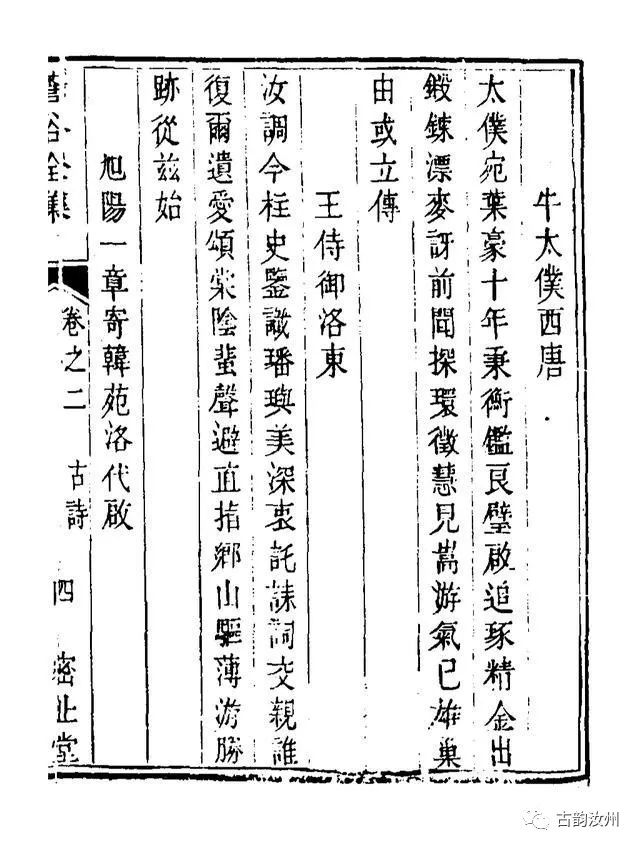 牛太僕西唐
太僕宛葉豪十年秉衡鑑良璧啟追琢精金出
鍛鍊漂麥訝前聞探環徵慧見嵩游氣已雄巢
由或立傳
王侍御洛東
汝調今柱史鑒識璠璵美深衷託誄詞交親誰
復爾遺愛頌棠陰蜚聲避直指鄉山驅薄游勝
跡從茲始
旭陽一章寄韓苑洛代啟
全集
卷之二
古詩
四
密止堂
古韵汝州